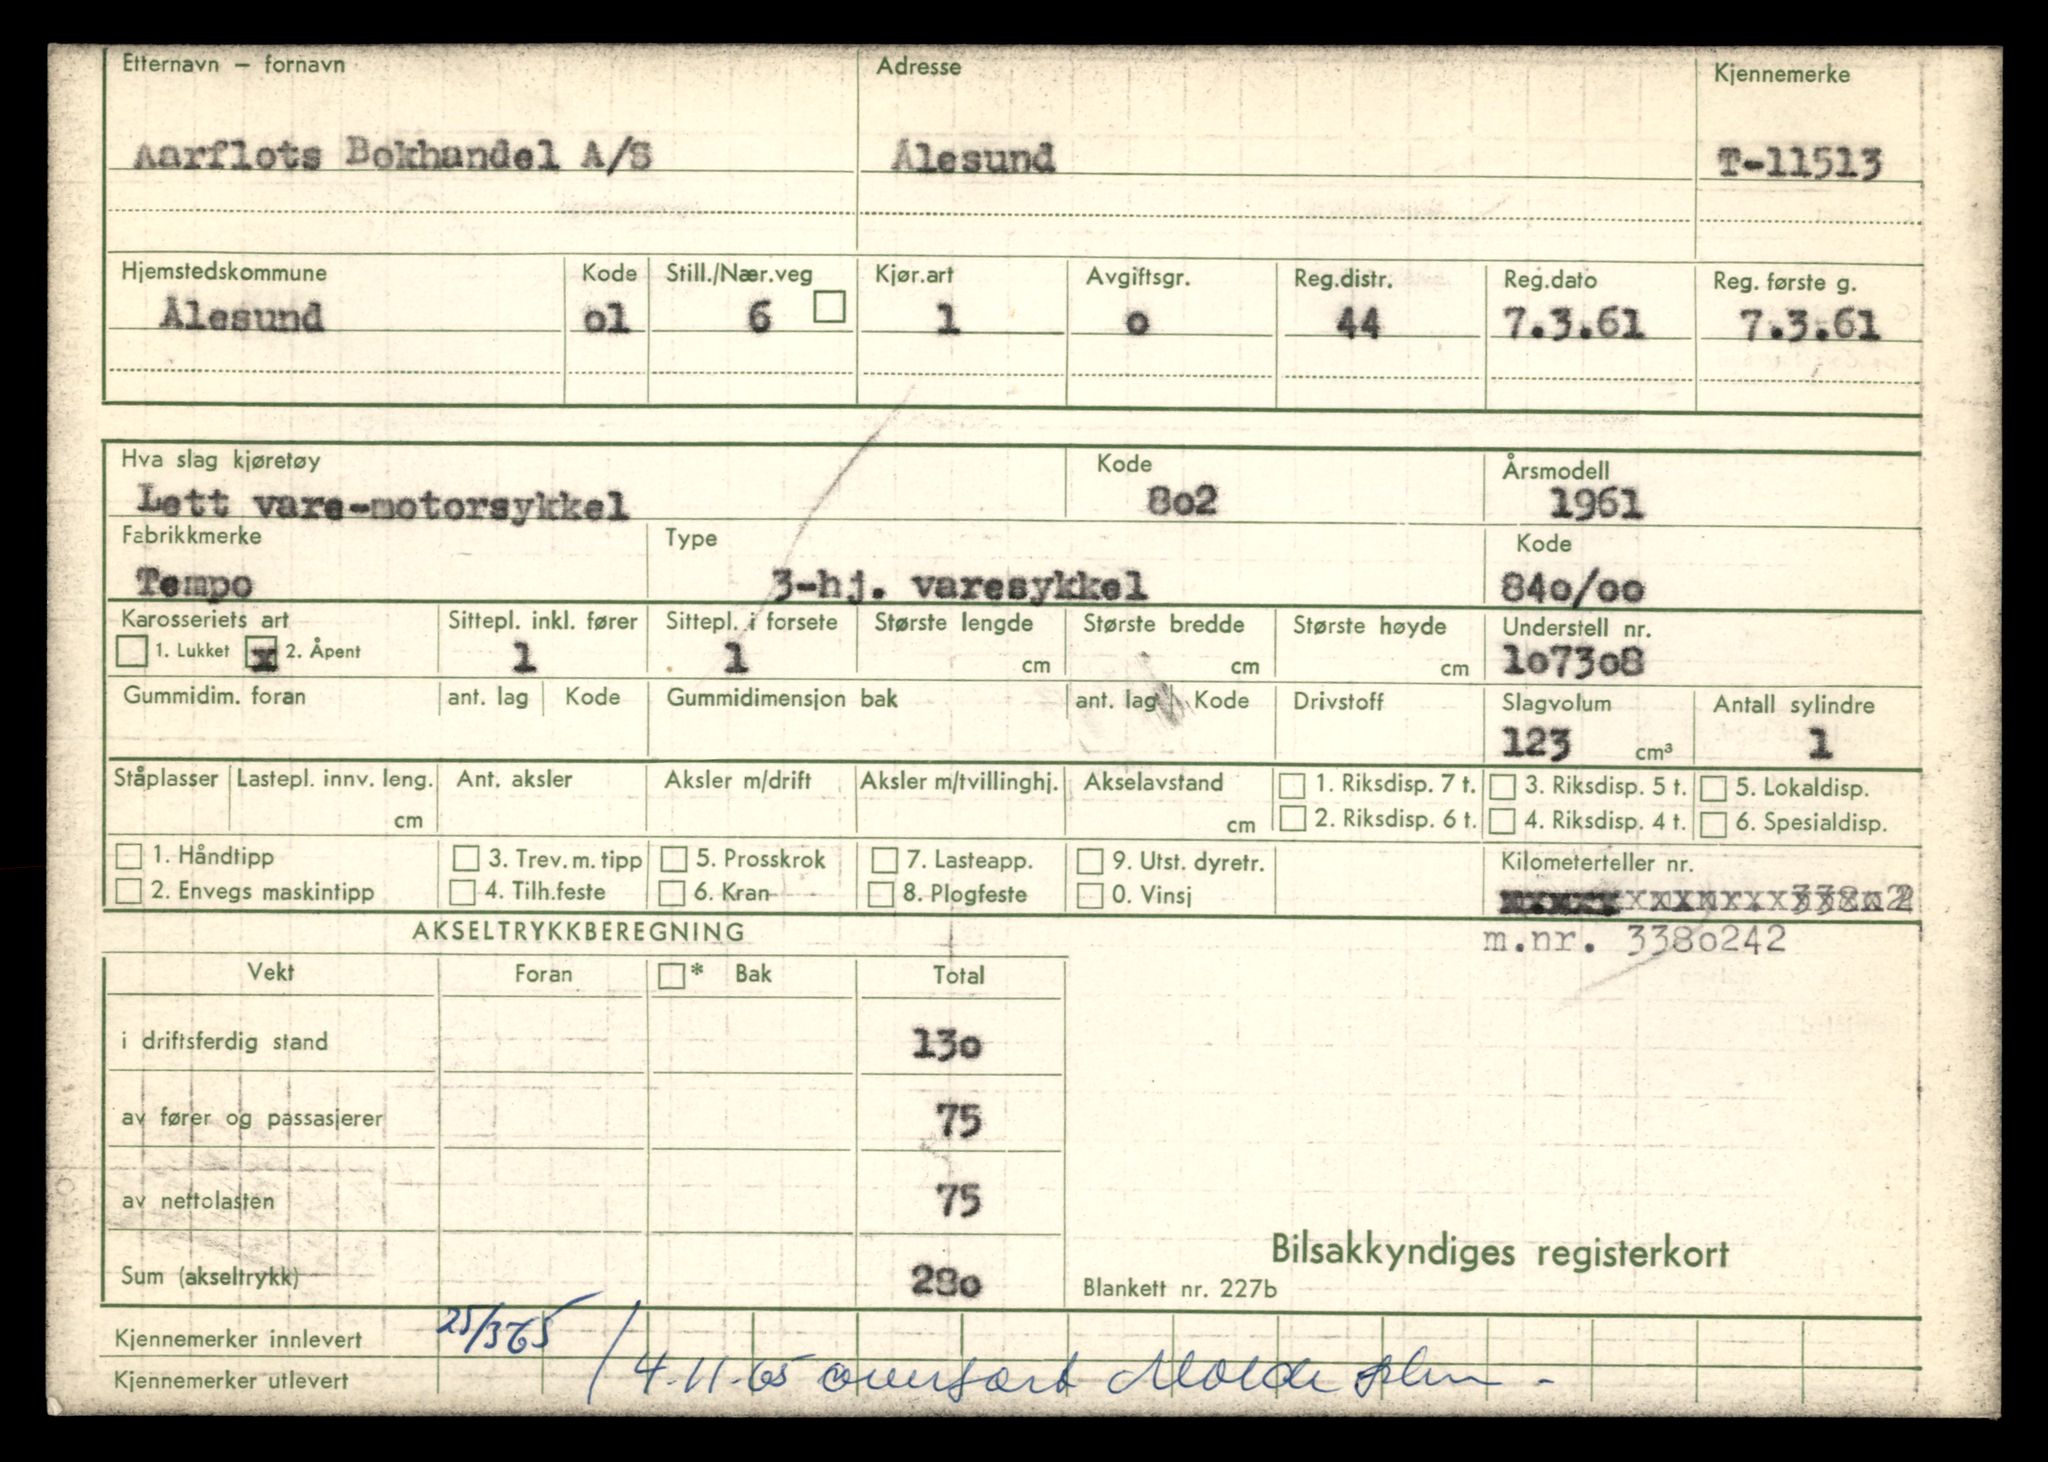 Etternavn – fornavn Adresse Kjennemerke
Aarflots Bokhandel A/S Ålesund T-11513
Hjemstedskommune Kode Still./Nær.veg Kjør.art Avgiftsgr. Reg.distr. Reg.dato Reg. første g.
Ålesund o1 6 1 o 44 7.3.61 7.3.61
Hva slag kjøretøy Kode Årsmodell
Lett vare-motorsykkel 8o2 1961
Fabrikkmerke Type Kode
Tempo 3-hj. varesykkel 84o/oo
Karosseriets art Sittepl. inkl. fører Sittepl. i forsete Største lengde Største bredde Største høyde Understell nr.
1. Lukket x 2. Åpent 1 1 cm cm cm 1o73o8
Gummidim. foran ant. lag Kode Gummidimensjon bak ant. lag Kode Drivstoff Slagvolum Antall sylindre
123 cm³ 1
Ståplasser Lastepl. innv. leng. Ant. aksler Aksler m/drift Aksler m/tvillinghj. Akselavstand 1. Riksdisp. 7 t. 3. Riksdisp. 5 t. 5. Lokaldisp.
cm cm 2. Riksdisp. 6 t. 4. Riksdisp. 4 t. 6. Spesialdisp.
1. Håndtipp 3. Trev. m. tipp 5. Prosskrok 7. Lasteapp. 9. Utst. dyretr. Kilometerteller nr.
2. Envegs maskintipp 4. Tilh.feste 6. Kran 8. Plogfeste 0. Vinsj
AKSELTRYKKBEREGNING m.nr. 338o242
Vekt Foran * Bak Total
i driftsferdig stand 13o
av fører og passasjerer 75
av nettolasten 75
Bilsakkyndiges registerkort
Sum (akseltrykk) 28o Blankett nr. 227b
Kjennemerker innlevert 25/3 65
Kjennemerker utlevert 4.11.65 overført Molde